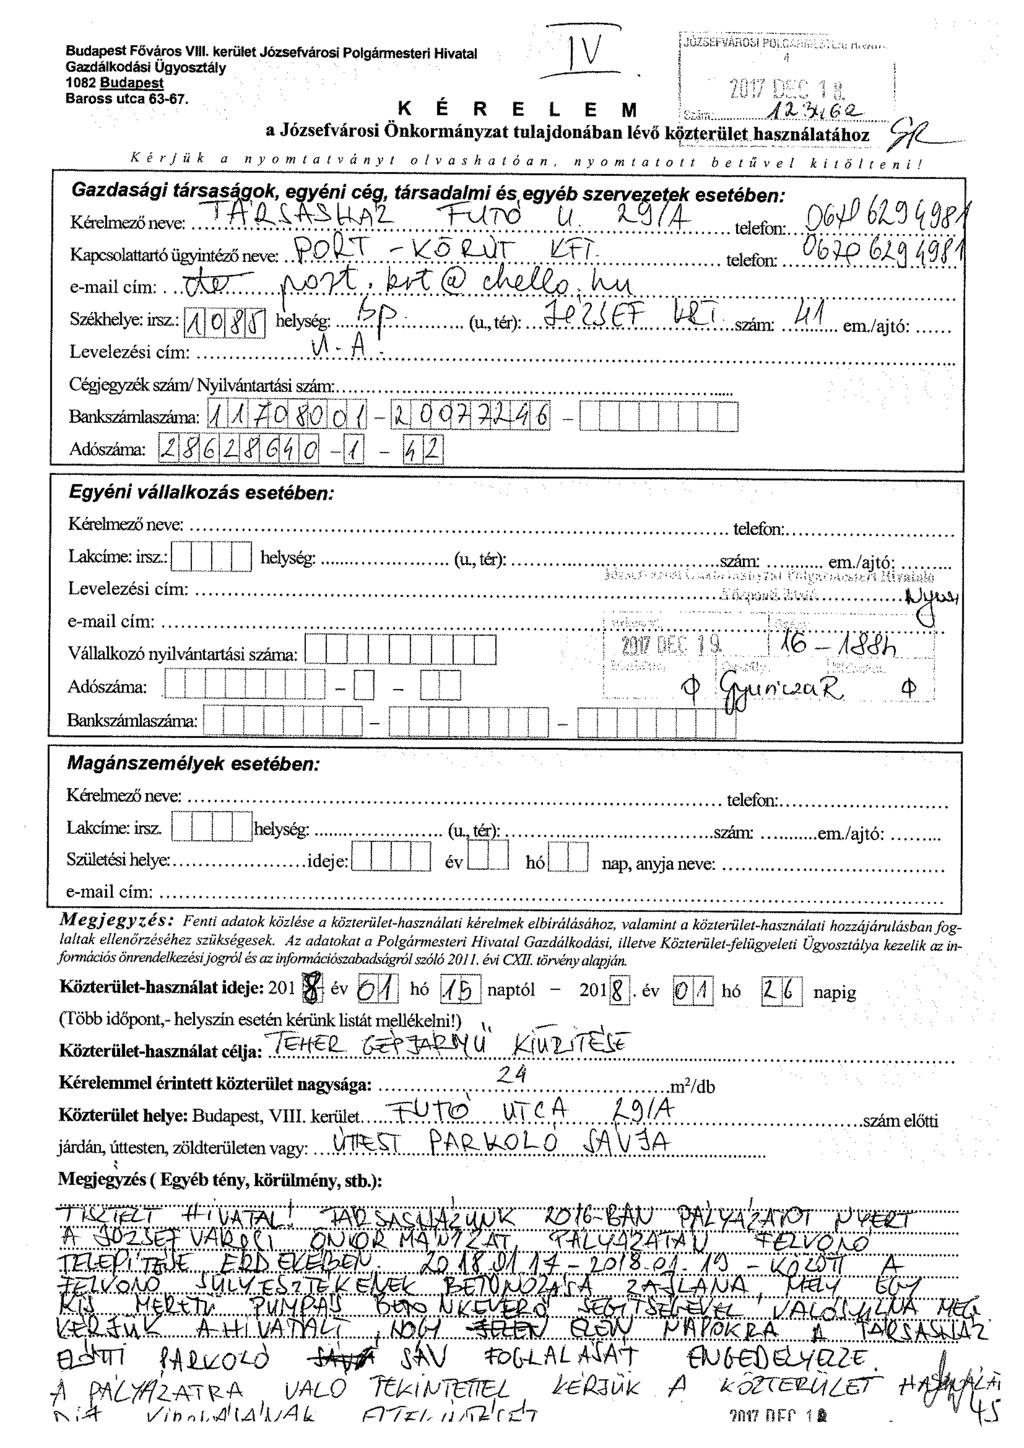 Budapest Főváros VIII. kerület Józsefvárosi Polgármesteri Hivatal
Gazdálkodási Ügyosztály
1082 Budapest
Baross utca 63-67.
IV
2017 DEC 18.
Szám:
K É R E L E M
a Józsefvárosi Önkormányzat tulajdonában lévő közterület használatához
Kérjük a nyomtatványt olvashatóan, nyomtatott betűvel kitölteni!
Gazdasági társaságok, egyéni cég, társadalmi és egyéb szervezetek esetében:
Kérelmező neve: TÁRSASHÁZ FUTÓ U. 29/A telefon: 0670 6294981
Kapcsolattartó ügyintéző neve: PORT-KÖRÚT KFT. telefon: 0670 6294981
e-mail cím: port.krt@chello.hu
Székhelye: irsz.: 1085 helység: Bp. (u., tér): JÓZSEF KRT. szám: 41 em./ajtó:
Levelezési cím: U.A.
Cégjegyzék szám/ Nyilvántartási szám:
Bankszámlaszáma: 11708001 - 20077246 -
Adószáma: 28628640 - 1 - 42
Egyéni vállalkozás esetében:
Kérelmező neve: telefon:
Lakcíme: irsz.: helység: (u., tér): szám: em./ajtó:
Levelezési cím:
e-mail cím:
Vállalkozó nyilvántartási száma: 2017 DEC 19. 16-1884
Adószáma: - - Gyuricza R.
Bankszámlaszáma: - -
Magánszemélyek esetében:
Kérelmező neve: telefon:
Lakcíme: irsz. helység: (u., tér): szám: em./ajtó:
Születési helye: ideje: év hó nap, anyja neve:
e-mail cím:
Megjegyzés: Fenti adatok közlése a közterület-használati kérelmek elbírálásához, valamint a közterület-használati hozzájárulásban fog-
laltak ellenőrzéséhez szükségesek. Az adatokat a Polgármesteri Hivatal Gazdálkodási, illetve Közterület-felügyeleti Ügyosztálya kezelik az in-
formációs önrendelkezési jogról és az információszabadságról szóló 2011. évi CXII. törvény alapján.
Közterület-használat ideje: 2018 év 01 hó 15 naptól - 2018. év 01 hó 26 napig
(Több időpont,- helyszín esetén kérünk listát mellékelni!)
Közterület-használat célja: TEHER GÉPJÁRMŰ KIÜRÍTÉSE
Kérelemmel érintett közterület nagysága: 24 m²/db
Közterület helye: Budapest, VIII. kerület FUTÓ UTCA 29/A szám előtti
járdán, úttesten, zöldterületen vagy: ÚTTEST PARKOLÓ SÁVJA
Megjegyzés ( Egyéb tény, körülmény, stb.):
TISZTELT HIVATAL! TÁRSASHÁZUNK 2016-BAN PÁLYÁZATOT NYERT
A JÓZSEFVÁROSI ÖNKORMÁNYZAT PÁLYÁZATÁN FELVONÓ
TELEPÍTÉSE ÉRDEKÉBEN. 2018.01.17 - 2018.01.19 - KÖZÖTT A
FELVONÓ SÚLYESZTÉKÉNEK BETONOZÁSA ZAJLANA, MELY EGY
KIS MÉRETŰ PUMPÁS BETONKEVERŐ SEGÍTSÉGÉVEL VALÓSULNA MEG
KÉRJÜK A HIVATALT, HOGY EZEN NAPOKRA A TÁRSASHÁZ
ELŐTTI PARKOLÓ SÁV FOGLALÁSÁT ENGEDÉLYEZZE.
A PÁLYÁZATRA VALÓ TEKINTETTEL KÉRJÜK A KÖZTERÜLET HASZNÁLATI
45
2017 DEC 18